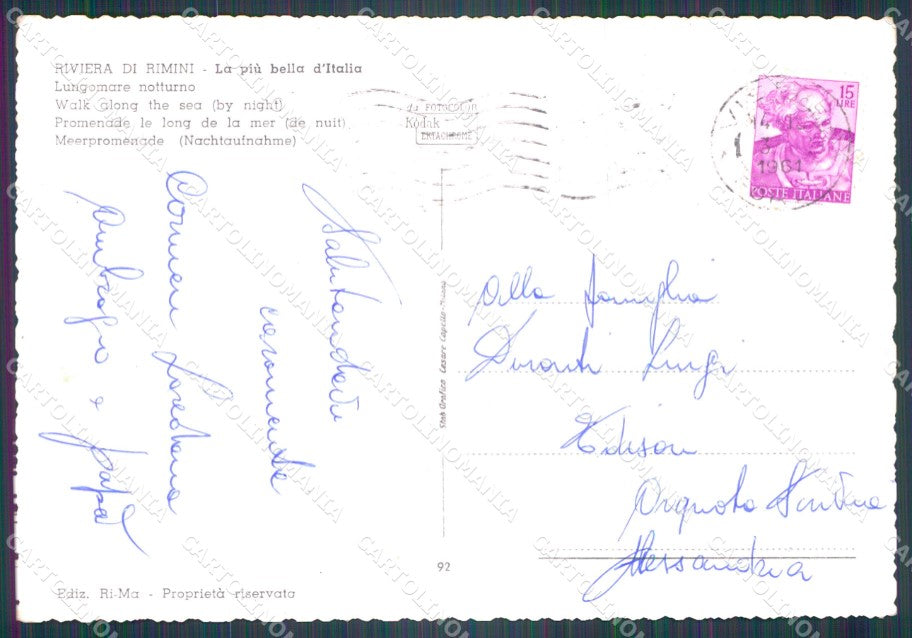 RIVIERA DI RIMINI - La più bella d'Italia
Lungomare notturno
Walk along the sea (by night)
Promenade le long de la mer (de nuit)
Meerpromenade (Nachtaufnahme)
da FOTOCOLOR
Kodak
EKTACHROME
15
LIRE
1961
POSTE ITALIANE
caramente
Carmen Loredana
Ambrogio e papà
Stab. Grafico Cesare Capello - Milano
Alla famiglia
Luigi
Edison
Arquata Scrivia
Alessandria
92
Ediz. Ri-Ma - Proprietà riservata
CARTOLINOMANIA